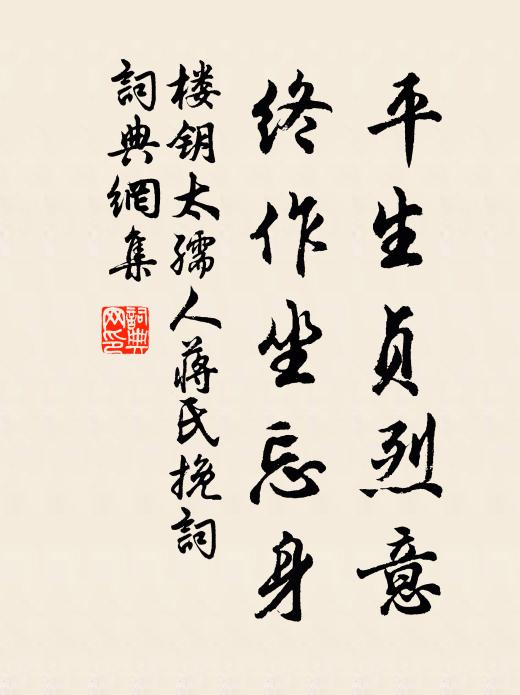 平生贞烈意
终作坐忘身
楼钥太孺人蒋氏挽詞
詞典網集
詞典网印